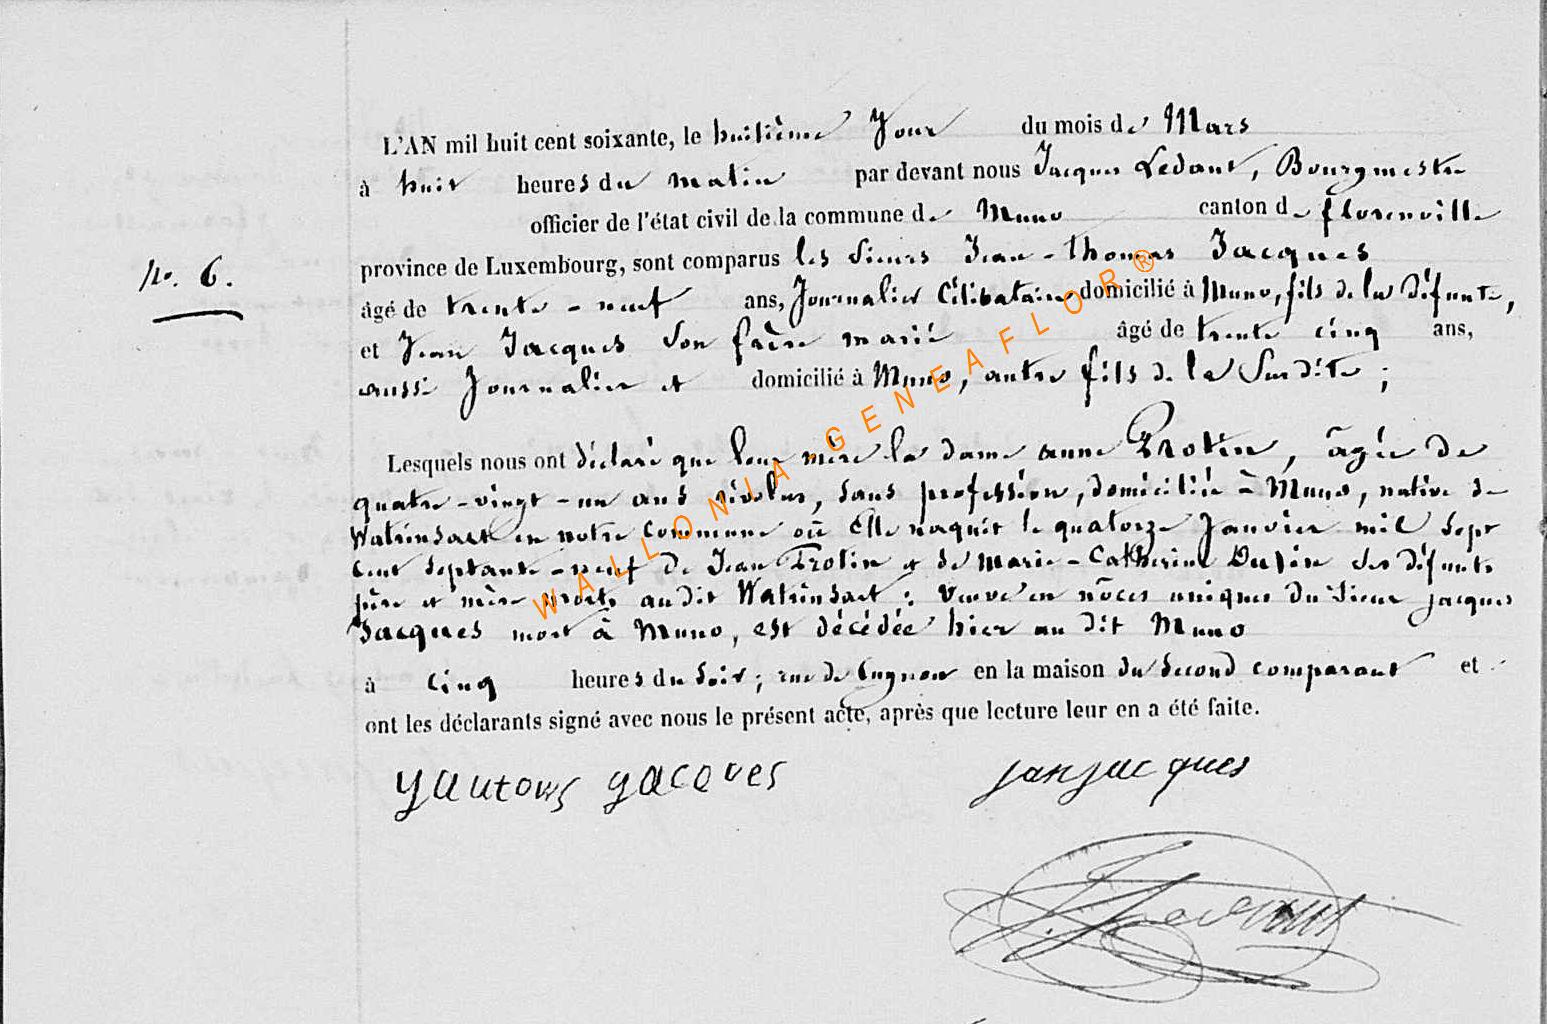 L'AN mil huit cent soixante, le huitième Jour du mois de Mars
à huit heures du matin par devant nous Jacques Ledant, Bourgmestre
officier de l'état civil de la commune de Muno canton de florenville
province de Luxembourg, sont comparus les sieurs Jean-Thomas Jacques
No. 6.
âgé de trente-neuf ans, Journalier Célibataire domicilié à Muno, fils de la défunte,
et Jean Jacques son frère marié âgé de trente cinq ans,
aussi Journalier et domicilié à Muno, autre fils de la Susdite ;
Lesquels nous ont déclaré que leur mère la dame anne Protin, âgée de
quatre-vingt-un ans révolus, sans profession, domiciliée à Muno, native de
Watrinsart en notre Commune où Elle naquit le quatorze Janvier mil sept
cent septante-neuf de Jean Protin et de Marie-Catherine des défunts
père et mère morts au dit Watrinsart ; Veuve en nôces uniques du Sieur Jacques
Jacques mort à Muno, est décédée hier au dit Muno
à cinq heures du soir ; rue de Cugnon en la maison du second comparant et
ont les déclarants signé avec nous le présent acte, après que lecture leur en a été faite.
gacques janjacques
J. Ledant
WALLONIA GENEAFLOR®